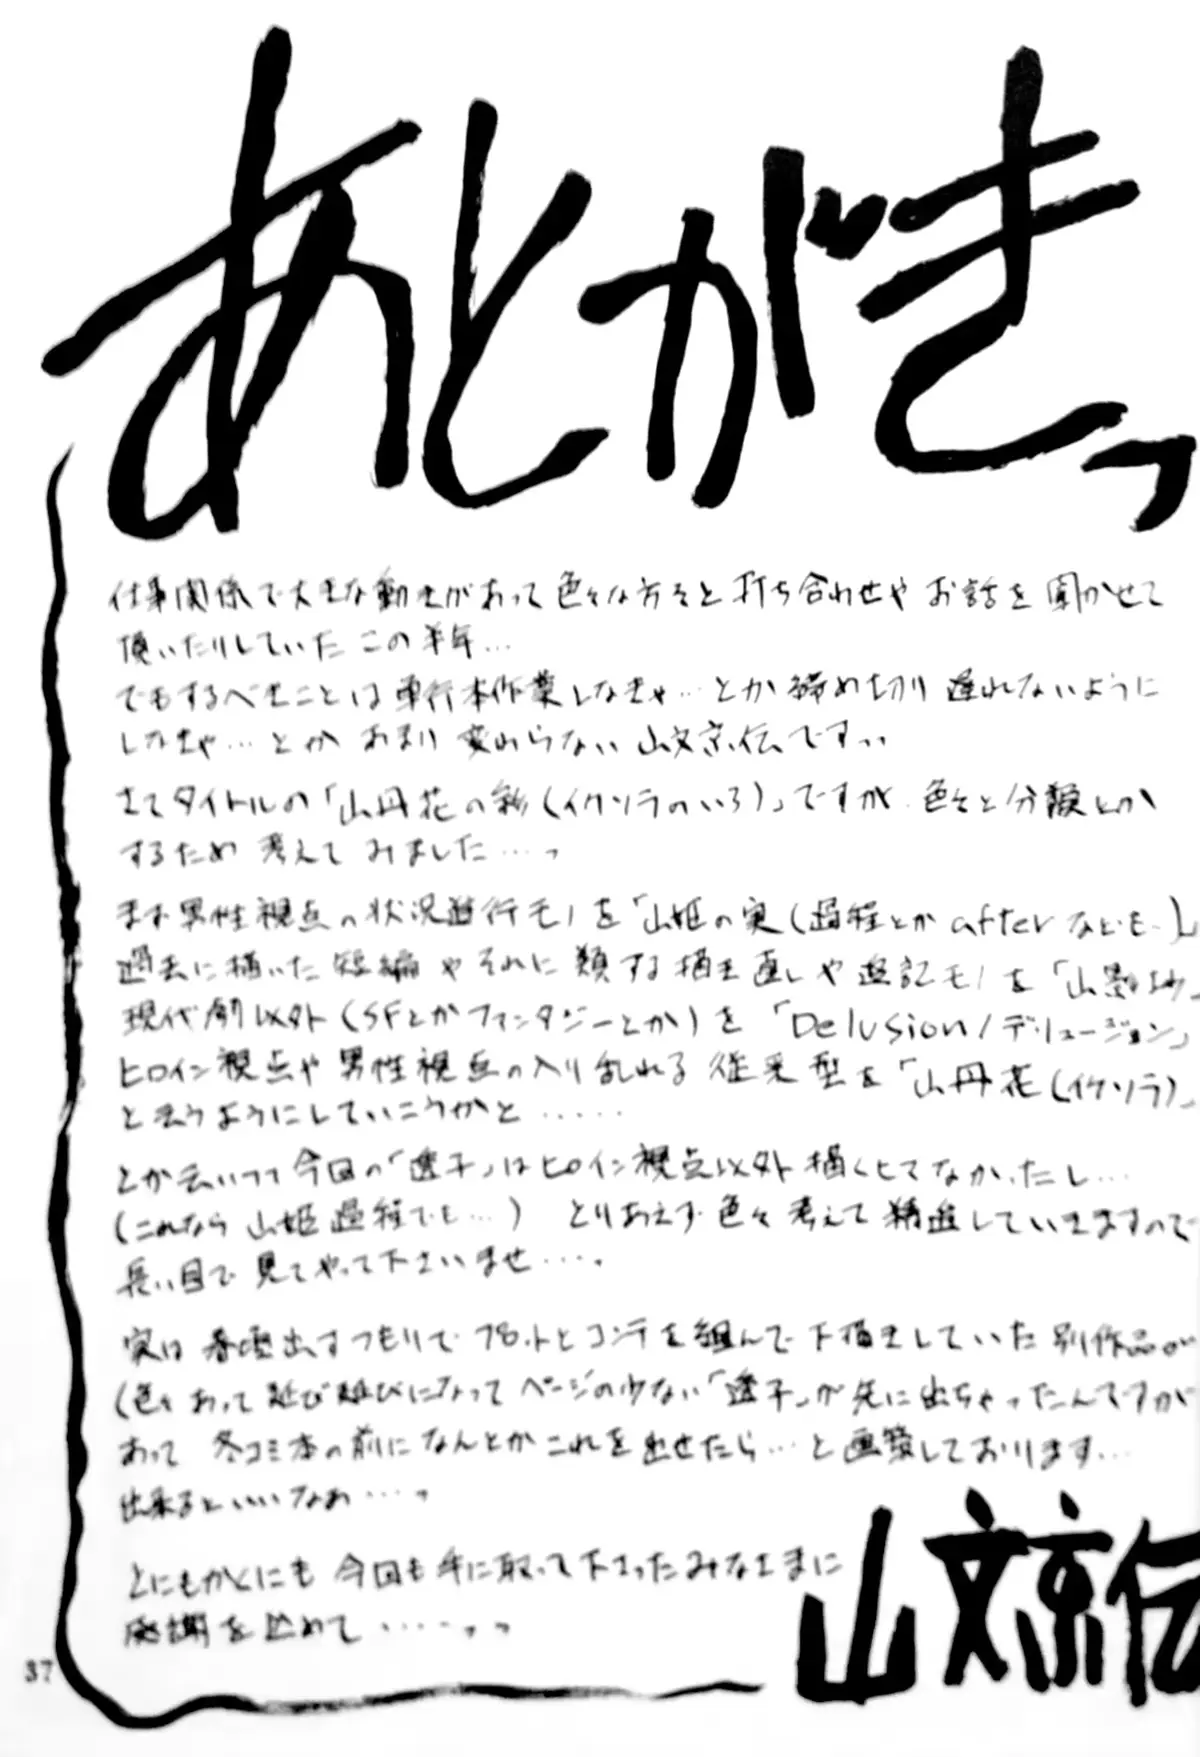 あとがきっ
仕事関係で大きな動きがあって色々な方々と打ち合わせやお話を聞かせて
頂いたりしていたこの半年…
でもするべきことは単行本作業しなきゃ…とか締め切り遅れないように
しなきゃ…とかあまり変わらない山文京伝ですっ
さてタイトルの「山丹花の彩(イケソラのいろ)」ですが、色々と分類とか
するため考えてみました……っ
まず男性視点の状況進行モノを「山姫の実(過程とかafterなども)」
過去に描いた短編やそれに類する描き直しや追記モノを「山景
現代劇以外(SFとかファンタジーとか)を「Delusion/デリュージョン」
ヒロイン視点や男性視点の入り乱れる従来型を「山丹花(イケソラ)」
と云うようにしていこうかと……
とか云いつつ今回の「透子」はヒロイン視点以外描くヒマなかったし…
(これなら山姫過程でも…) とりあえず色々考えて精進していきますので
長い目で見てやって下さいませ……。
実は春頃出すつもりでプロットとコンテを組んで下描きしていた別作品が
(色々あって延び延びになってページの少ない「透子」が先に出ちゃったんですが
あって 冬コミ本の前になんとかこれを出せたら…と画策しております…
出来るといいなぁ……っ
とにもかくにも今回も手に取って下さったみなさまに
感謝を込めて……っっ
山文京伝
37